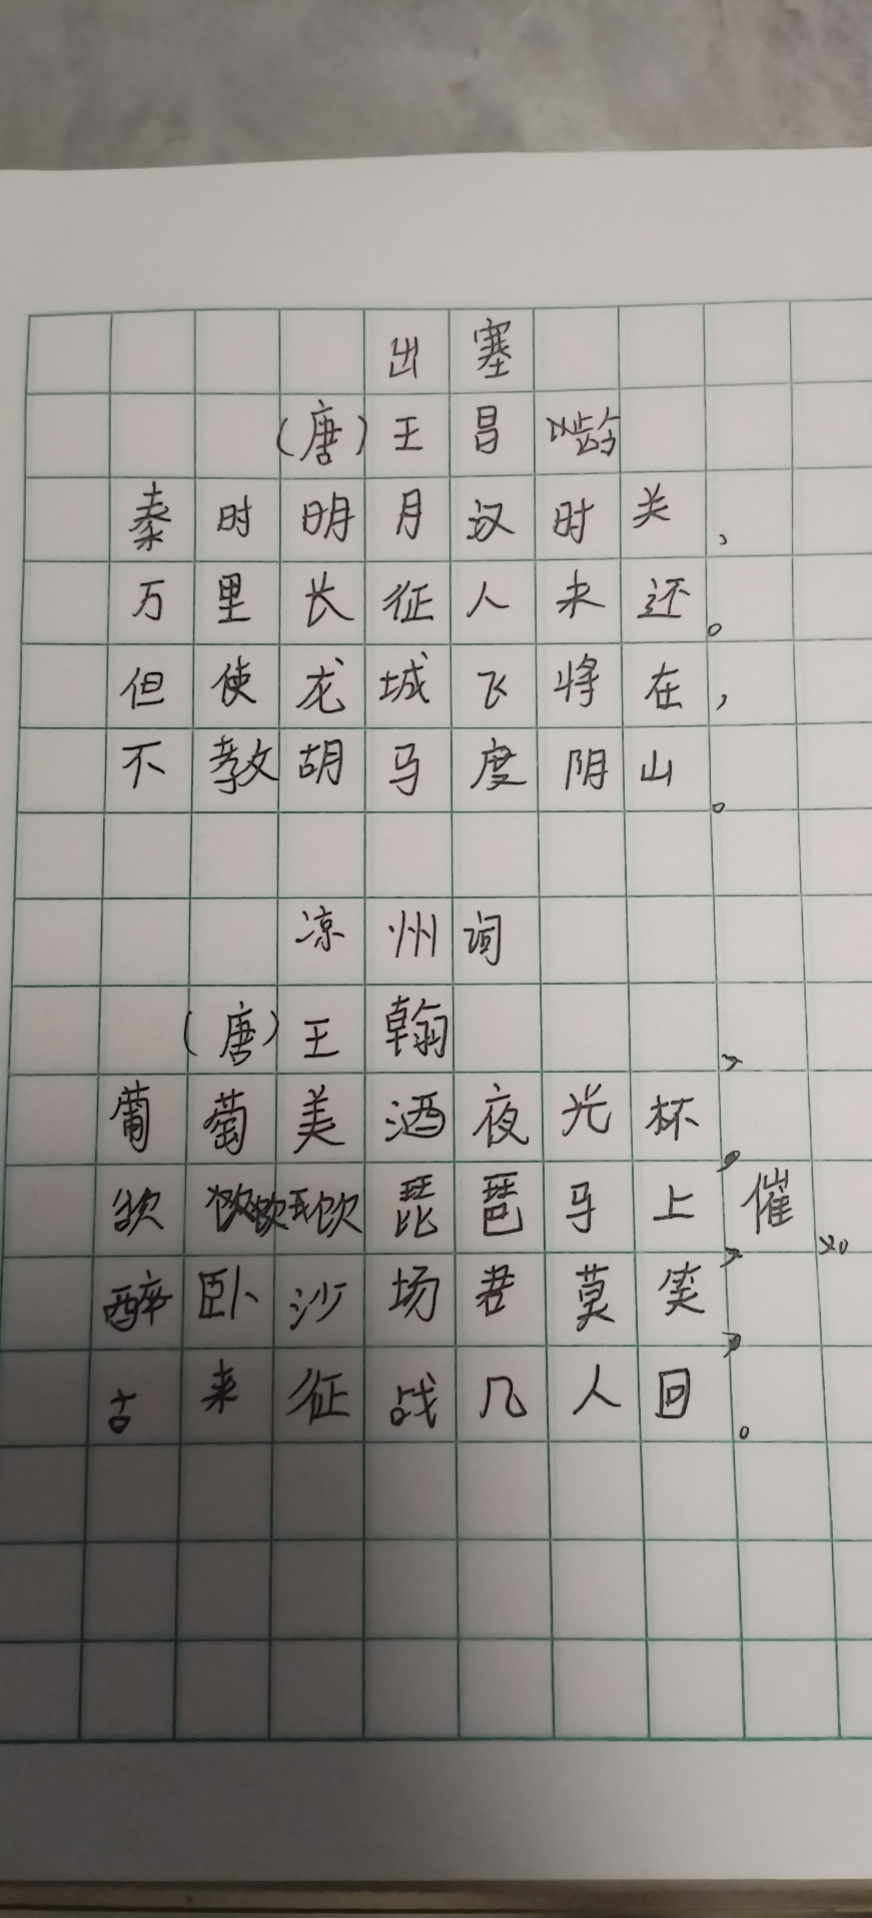 出塞
（唐）王昌龄
秦时明月汉时关，
万里长征人未还。
但使龙城飞将在，
不教胡马度阴山。
凉州词
（唐）王翰
葡萄美酒夜光杯，
欲饮琵琶马上催。
醉卧沙场君莫笑，
古来征战几人回。